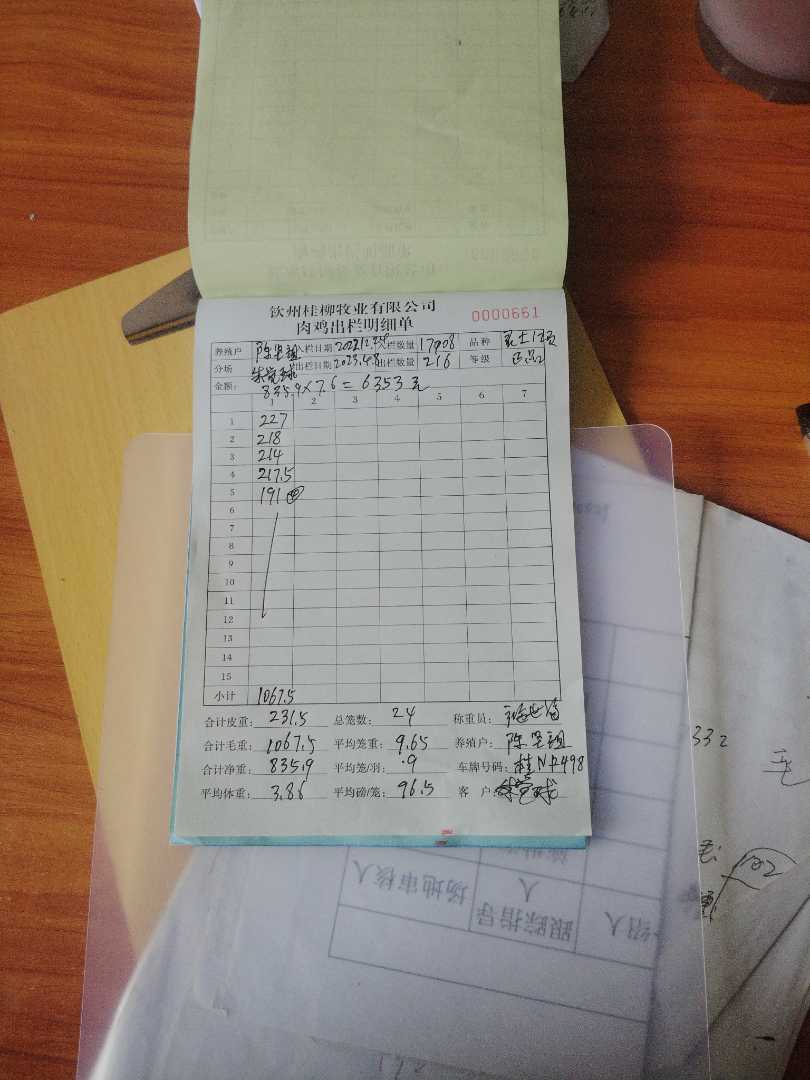 钦州桂柳牧业有限公司
肉鸡出栏明细单 0000661
养殖户 陈坚祖 入栏日期 入栏数量 17908 品种
分场 出栏日期 2023.4.8 出栏数量 216 等级 正品
金额: 835.9×7.6=6353元
1 2 3 4 5 6 7
1 227
2 218
3 214
4 217.5
5 191 ④
6
7
8
9
10
11
12
13
14
15
小计 1067.5
合计皮重: 231.5 总笼数: 24 称重员:
合计毛重: 1067.5 平均笼重: 9.65 养殖户: 陈坚祖
合计净重: 835.9 平均笼/羽: .9 车牌号码:
平均体重: 3.86 平均磅/笼: 96.5 客 户:
332
场地审核人
跟踪指导人